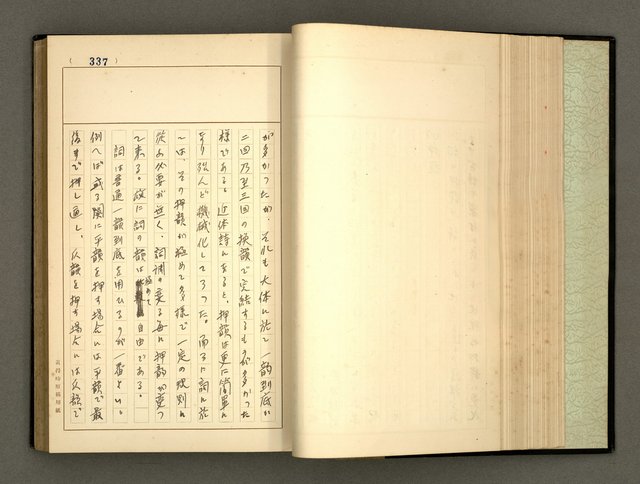 ( 337 )
が多かつたが、それも大体に於て一韻到底に
二回乃至三回の換韻で完結するものが多かつた
様である。近体詩に至ると、押韻は更に簡単に
なり殆んど機械化してしまつた。而るに詞に於
ては、その押韻が極めて多様で一定の規則に
従ふ必要が無く、詞調の変る毎に押韻が変つ
て来る。故に詞の韻は極めて自由である。
詞は普通一韻到底を用ひるのが一番よい。
例へば或る闋に平韻を押す場合には平韻で最
後まで押し通し、仄韻を押す場合には仄韻で
原稿用紙